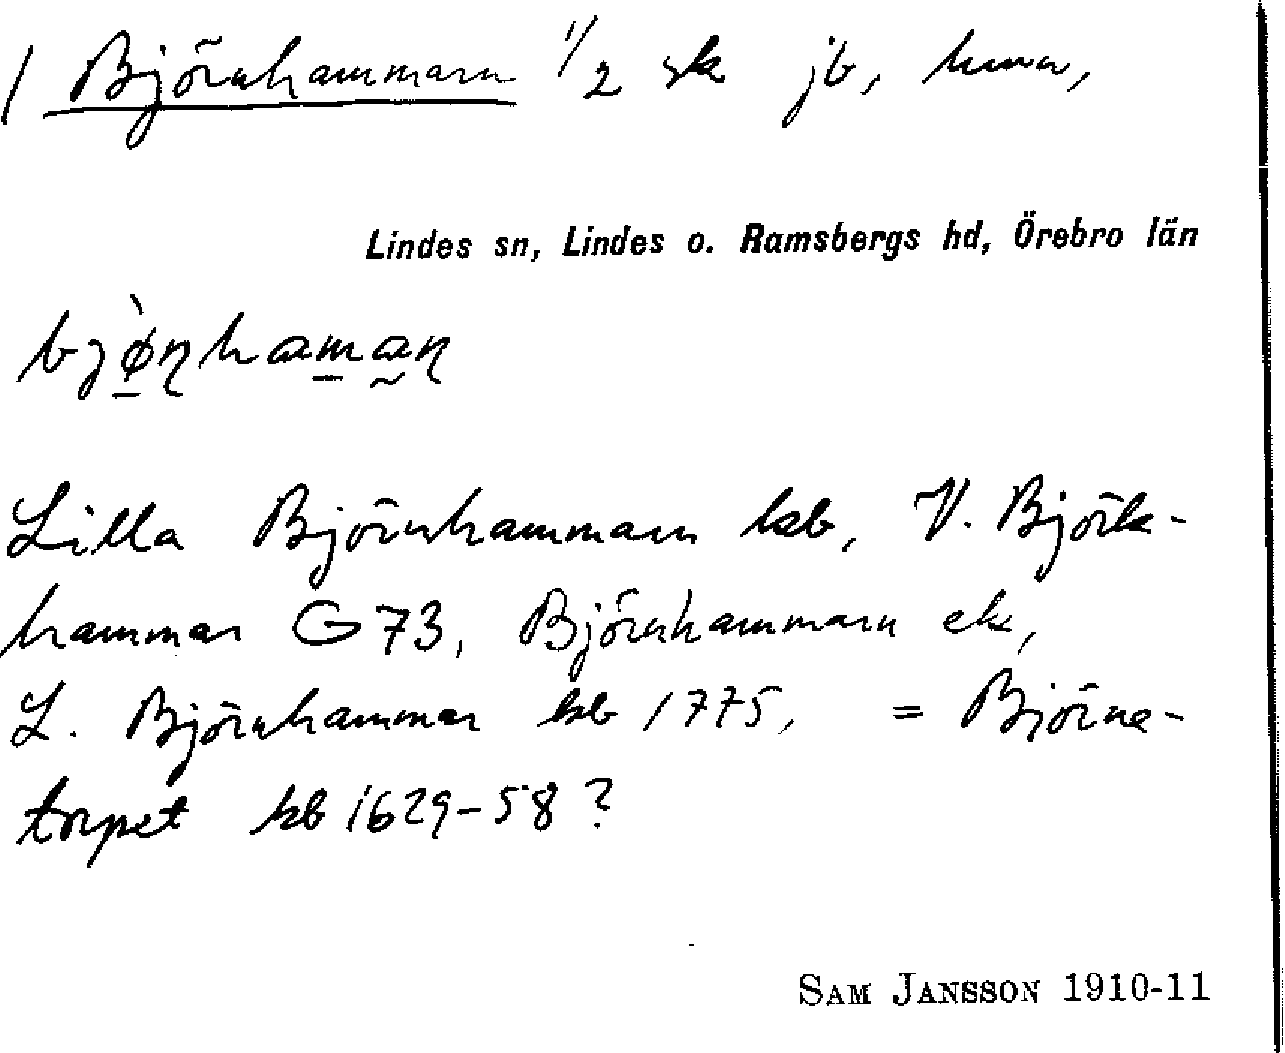 / Björnhammarn 1/2 sk jb, hmn,
Lindes sn, Lindes o. Ramsbergs hd, Örebro län
Lilla Björnhammarn kb, V. Björk-
hammar G 73, Björnhammarn ek,
L. Björnhammar kb 1775, = Björne-
torpet kb 1629-58?
SAM JANSSON 1910-11